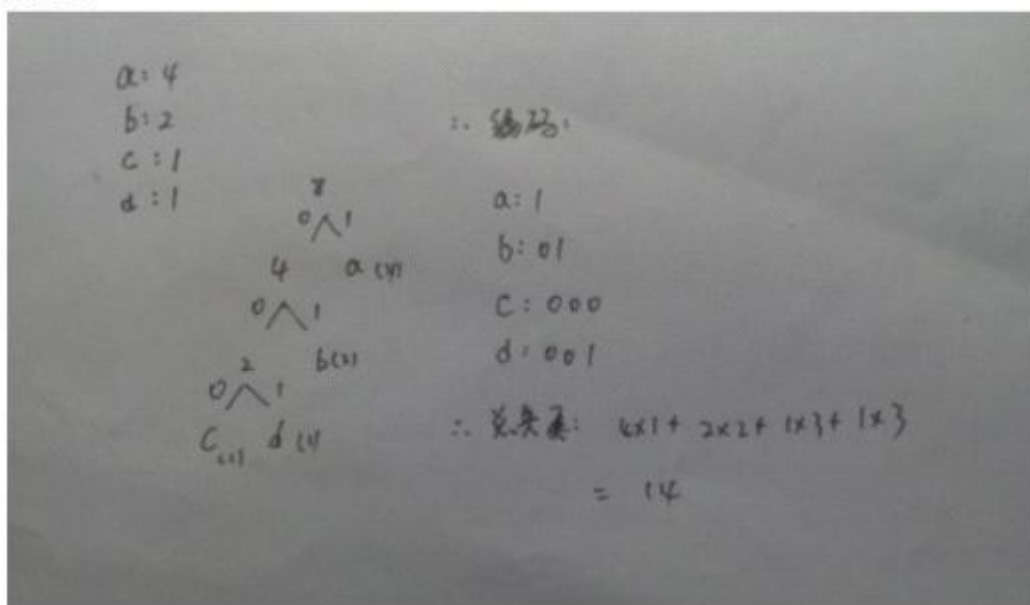 a: 4
b: 2
c: 1
d: 1
8
0 1
4 a (4)
0 1
2 b(2)
0 1
C (1) d (1)
∴ 编码:
a: 1
b: 01
C: 000
d: 001
∴ 总长度: 4×1 + 2×2 + 1×3 + 1×3
= 14